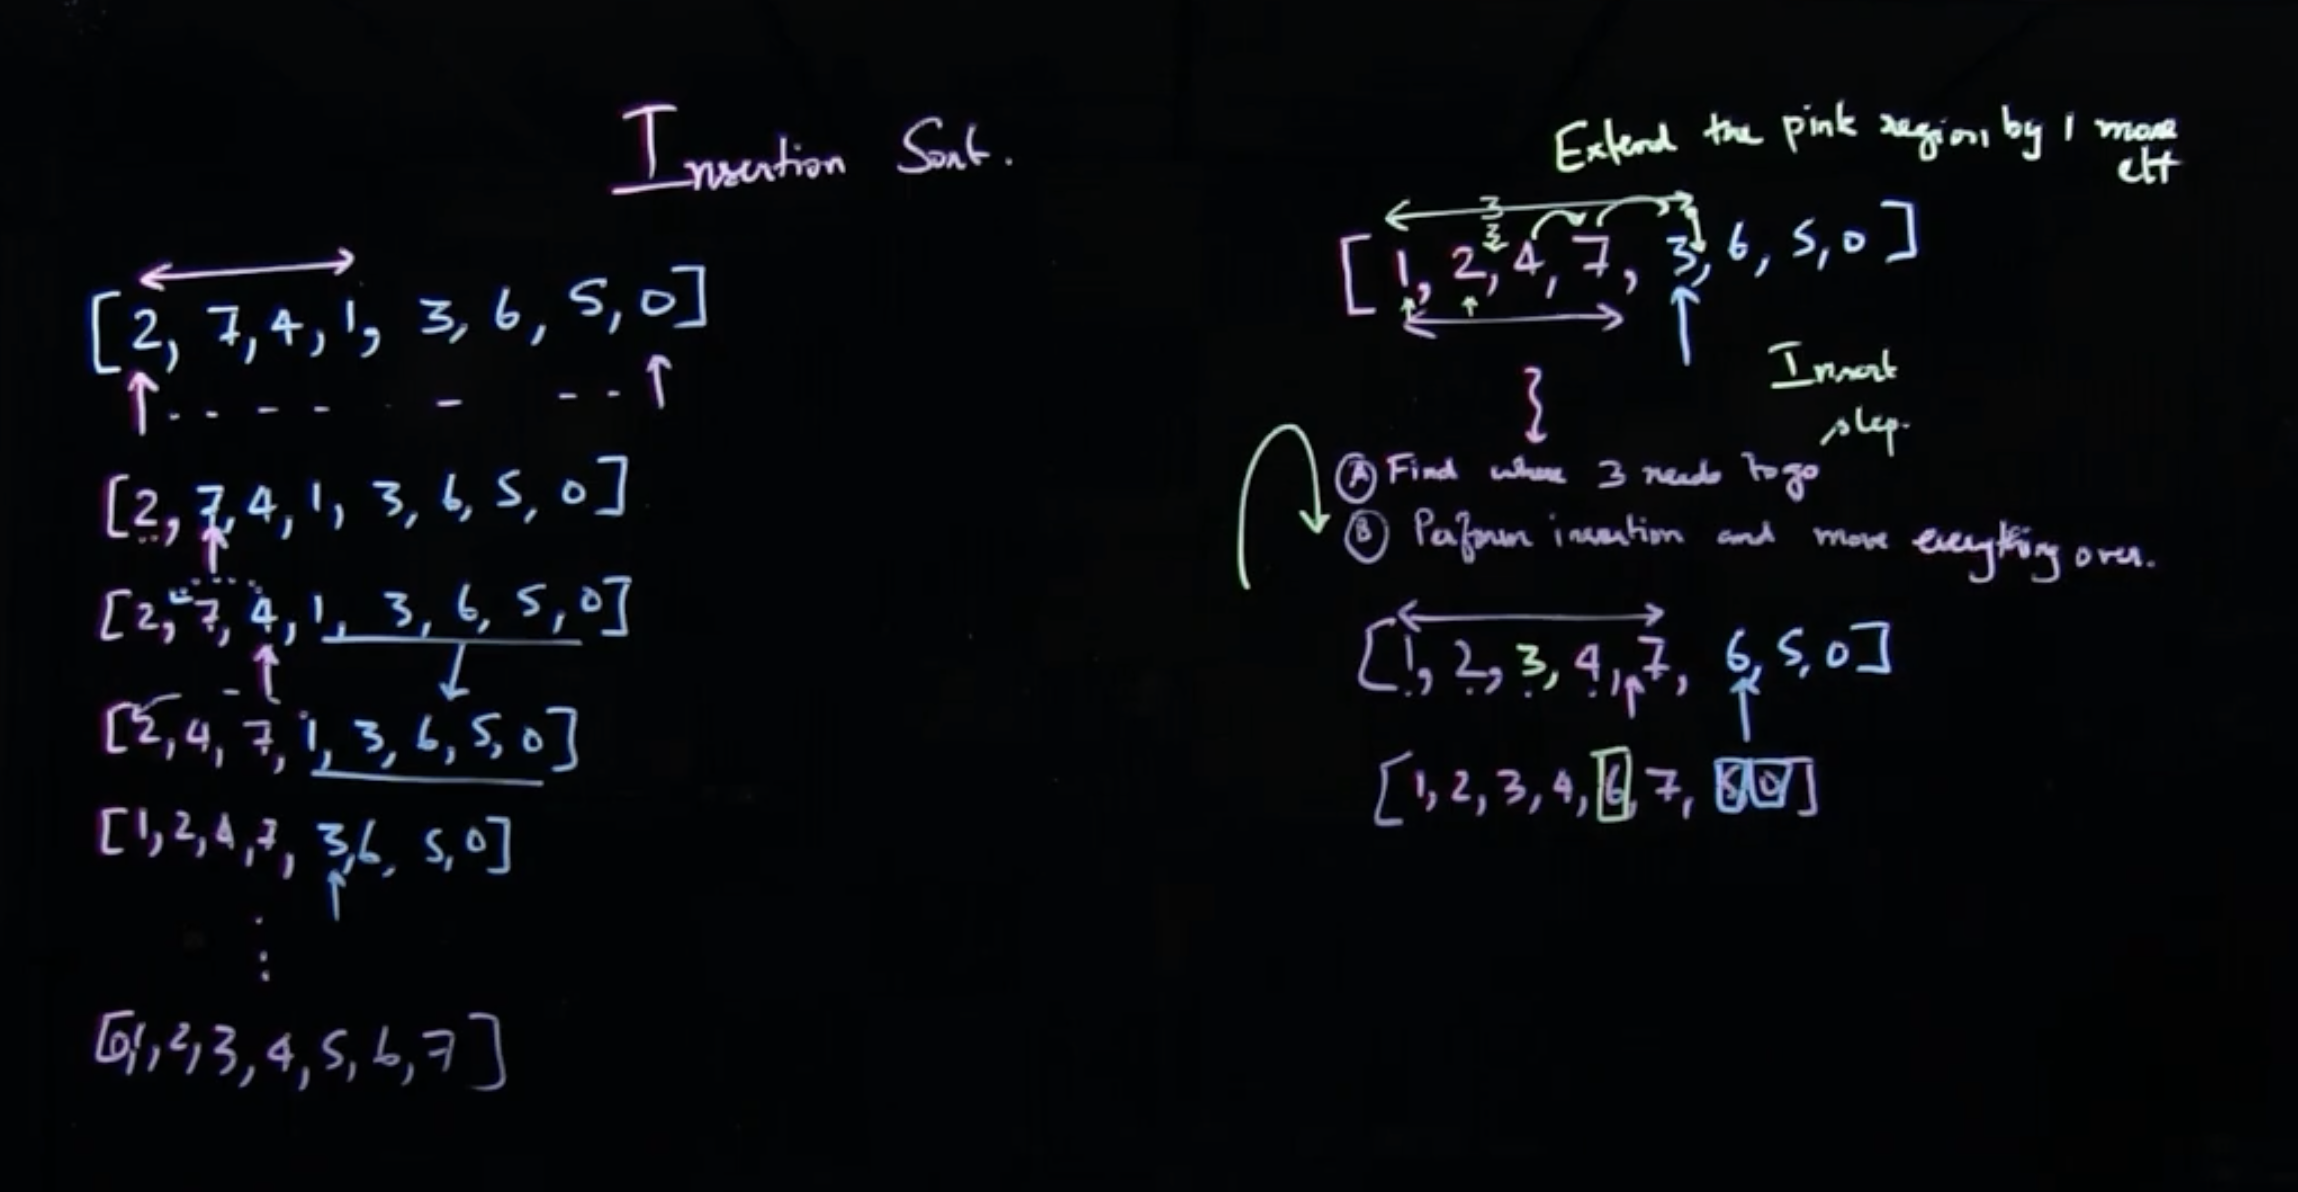 Insertion Sort.
[2, 7, 4, 1, 3, 6, 5, 0]
[2, 7, 4, 1, 3, 6, 5, 0]
[2, 7, 4, 1, 3, 6, 5, 0]
[2, 4, 7, 1, 3, 6, 5, 0]
[1, 2, 4, 7, 3, 6, 5, 0]
[0, 1, 2, 3, 4, 5, 6, 7]
Extend the pink region by 1 more
elt
3
3
[1, 2, 4, 7, 3, 6, 5, 0]
Insert
step.
A Find where 3 needs to go
B Perform insertion and move everything over.
[1, 2, 3, 4, 7, 6, 5, 0]
[1, 2, 3, 4, 6, 7, 5 0]